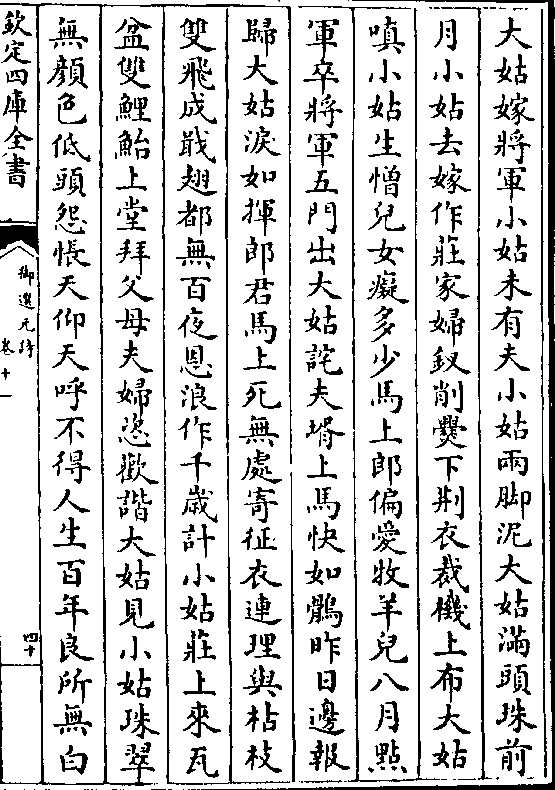 大姑嫁將軍小姑未有夫小姑兩脚泥大姑滿頭珠前
月小姑去嫁作莊家婦釵削爨下荆衣裁機上布大姑
嗔小姑生憎兒女癡多少馬上郎偏愛牧羊兒八月點
軍卒將軍五門出大姑詫夫壻上馬快如鶻昨日邊報
歸大姑淚如揮郎君馬上死無處寄征衣連理與枯枝
雙飛成戢翅都無百夜恩浪作千歳計小姑莊上來瓦
盆雙鯉鮐上堂拜父母夫婦恣歡諧大姑見小姑珠翠
無顔色低頭怨悵天仰天呼不得人生百年良所無白
欽定四庫全書
御選元詩
卷十
四十